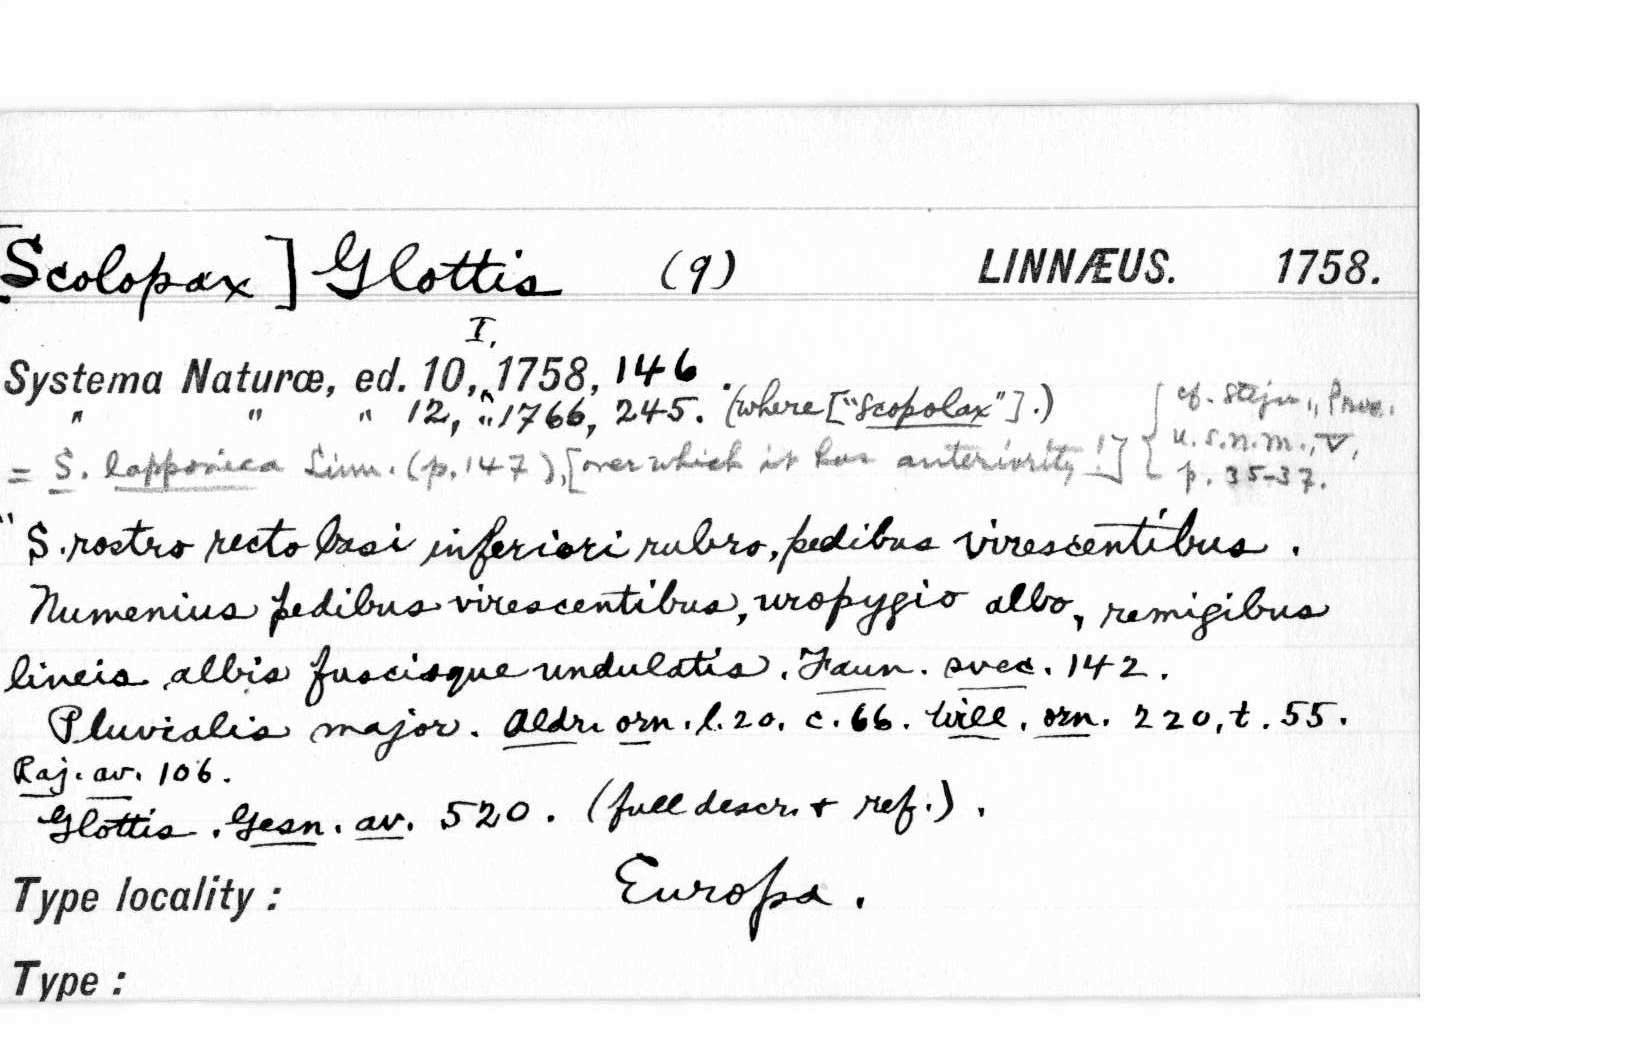 [Scolopax] Glottis (9) LINNÆUS. 1758.
I,
Systema Naturæ, ed. 10, 1758, 146.
" " " 12, " 1766, 245. (where ["Scopolax"].)
= S. lapponica Linn. (p. 147), [over which it has anteriority!]
{cf. Stejn., Proc.
U.S.N.M., V,
p. 35-37.
"S. rostro recto basi inferiori rubro, pedibus virescentibus.
Numenius pedibus virescentibus, uropygio albo, remigibus
lineis albis fuscisque undulatis. Faun. svec. 142.
Pluvialis major. Aldr. orn. l. 20. c. 66. Will. orn. 220, t. 55.
Raj. av. 106.
Glottis. Gesn. av. 520. (full descr. + ref.).
Type locality: Europa.
Type: